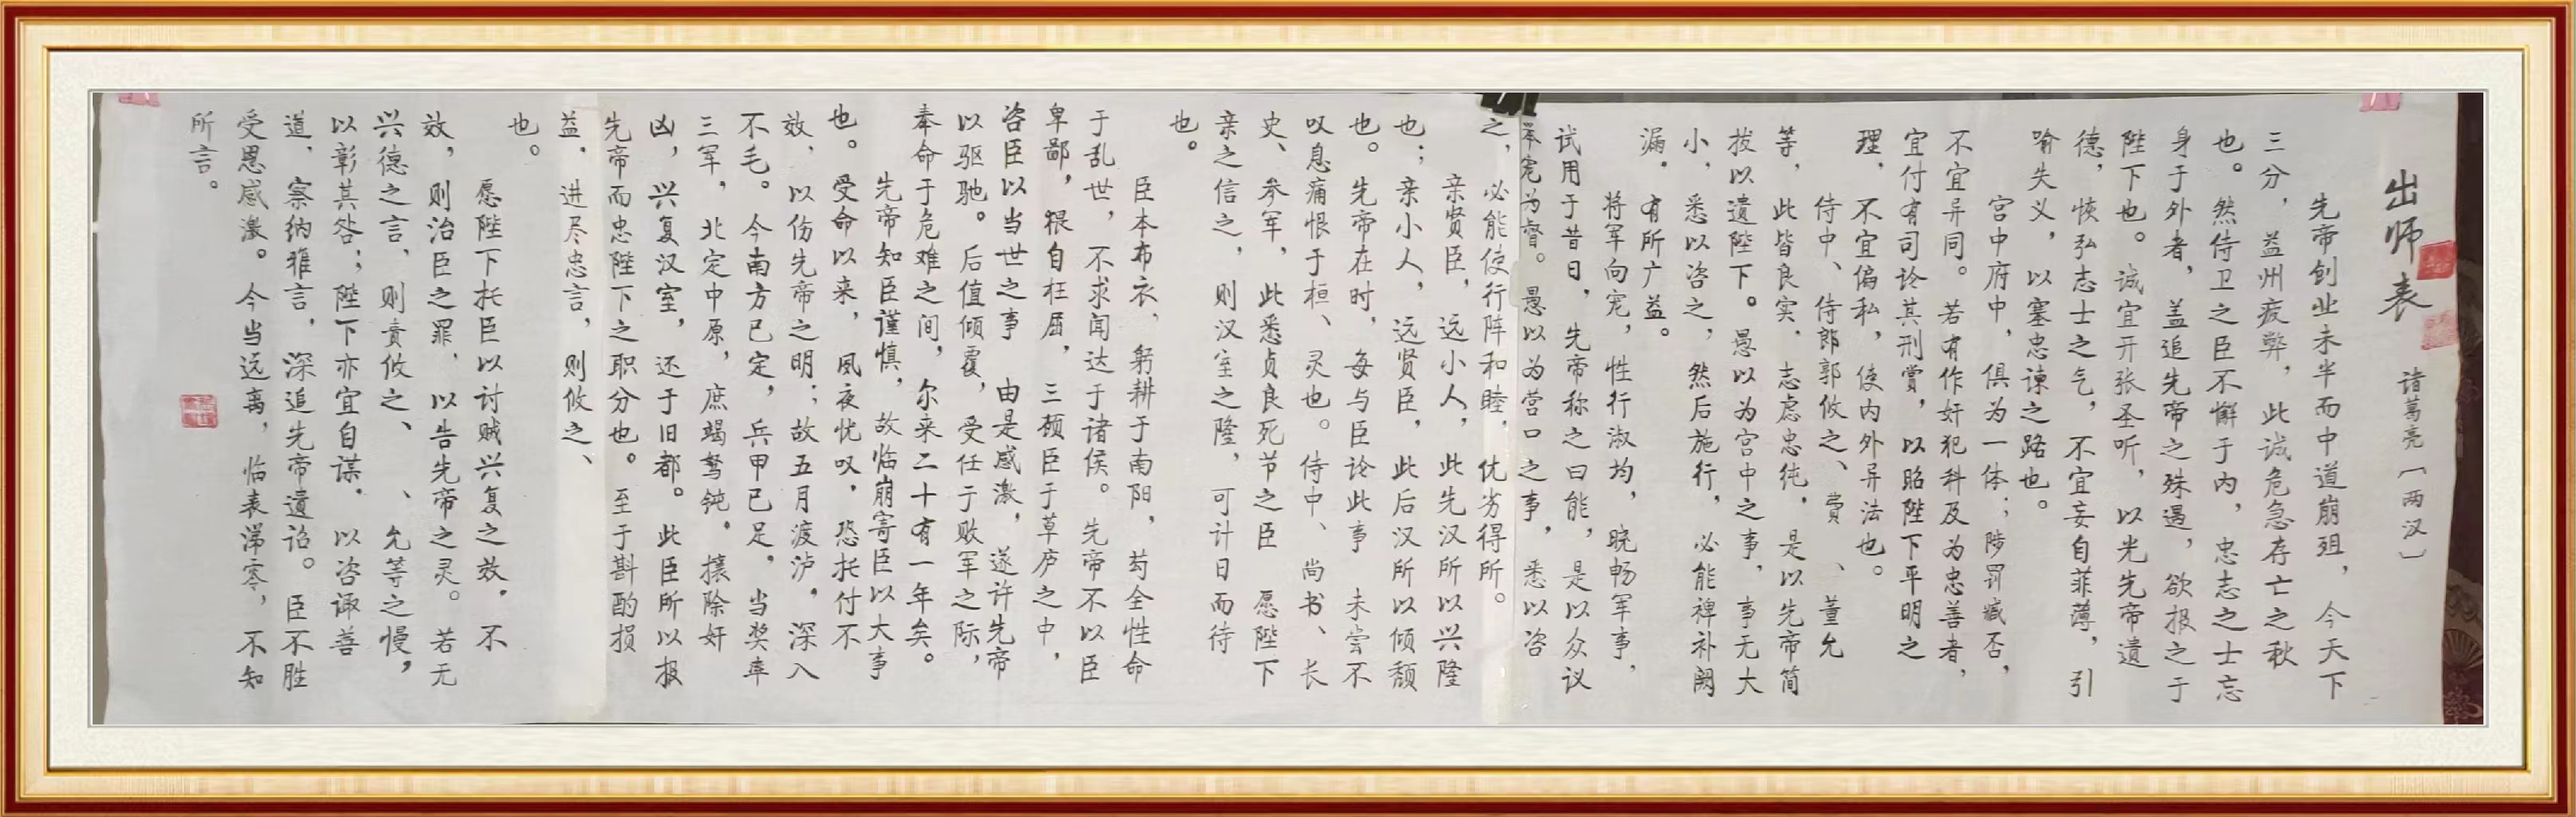 出师表 诸葛亮〔两汉〕
先帝创业未半而中道崩殂，今天下
三分，益州疲弊，此诚危急存亡之秋
也。然侍卫之臣不懈于内，忠志之士忘
身于外者，盖追先帝之殊遇，欲报之于
陛下也。诚宜开张圣听，以光先帝遗
德，恢弘志士之气，不宜妄自菲薄，引
喻失义，以塞忠谏之路也。
宫中府中，俱为一体；陟罚臧否，
不宜异同。若有作奸犯科及为忠善者，
宜付有司论其刑赏，以昭陛下平明之
理，不宜偏私，使内外异法也。
侍中、侍郎郭攸之、费、董允
等，此皆良实，志虑忠纯，是以先帝简
拔以遗陛下。愚以为宫中之事，事无大
小，悉以咨之，然后施行，必能裨补阙
漏，有所广益。
将军向宠，性行淑均，晓畅军事，
试用于昔日，先帝称之曰能，是以众议
举宠为督。愚以为营口之事，悉以咨
之，必能使行阵和睦，优劣得所。
亲贤臣，远小人，此先汉所以兴隆
也；亲小人，远贤臣，此后汉所以倾颓
也。先帝在时，每与臣论此事 未尝不
叹息痛恨于桓、灵也。侍中、尚书、长
史、参军，此悉贞良死节之臣 愿陛下
亲之信之，则汉室之隆，可计日而待
也。
臣本布衣，躬耕于南阳，苟全性命
于乱世，不求闻达于诸侯。先帝不以臣
卑鄙，猥自枉屈，三顾臣于草庐之中，
咨臣以当世之事 由是感激，遂许先帝
以驱驰。后值倾覆，受任于败军之际，
奉命于危难之间，尔来二十有一年矣。
先帝知臣谨慎，故临崩寄臣以大事
也。受命以来，夙夜忧叹，恐托付不
效，以伤先帝之明；故五月渡泸，深入
不毛。今南方已定，兵甲已足，当奖率
三军，北定中原，庶竭驽钝，攘除奸
凶，兴复汉室，还于旧都。此臣所以报
先帝而忠陛下之职分也。至于斟酌损
益，进尽忠言，则攸之、
也。
愿陛下托臣以讨贼兴复之效，不
效，则治臣之罪，以告先帝之灵。若无
兴德之言，则责攸之、、允等之慢，
以彰其咎；陛下亦宜自谋，以咨诹善
道，察纳雅言，深追先帝遗诏。臣不胜
受恩感激。今当远离，临表涕零，不知
所言。